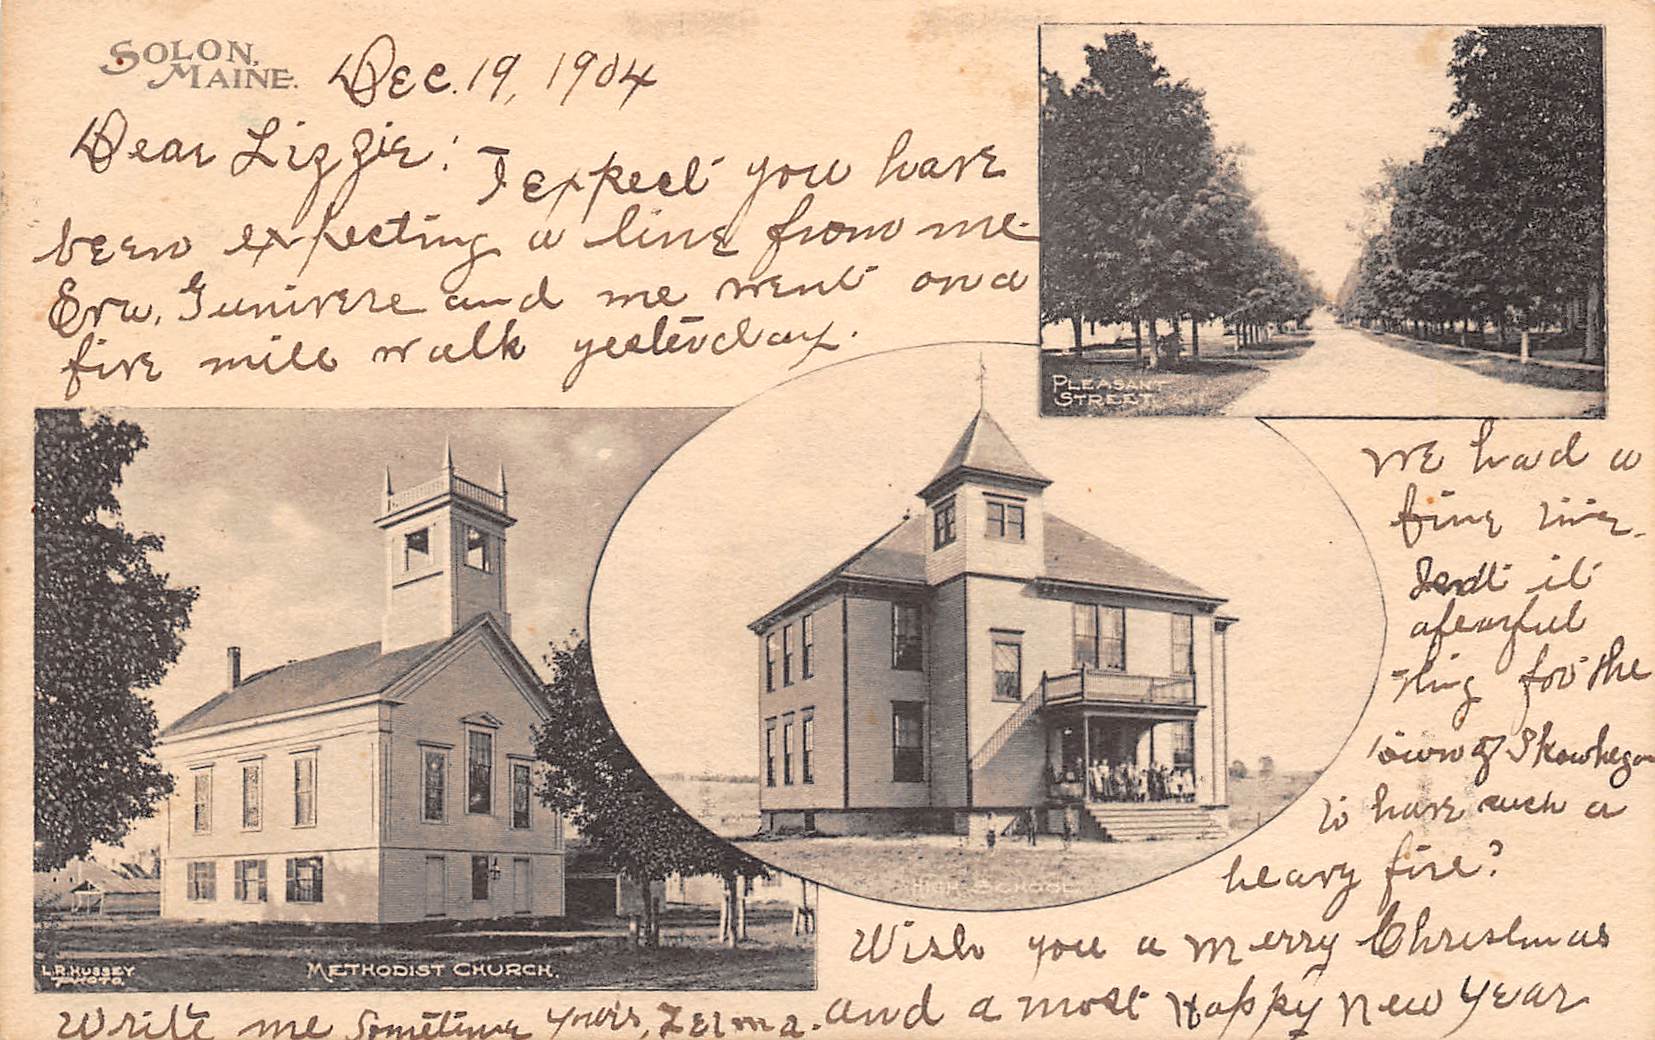 SOLON,
MAINE.
Dec. 19, 1904
Dear Lizzie:
I expect you have
been expecting a line from me.
Eva, Gunivere and me went on a
five mile walk yesterday.
PLEASANT
STREET.
We had a
fine time.
Isn't it
a fearful
thing for the
town of Skowhegan
to have such a
heavy fire?
HIGH SCHOOL.
L.R. HUSSEY
PHOTO.
METHODIST CHURCH.
Wish you a Merry Christmas
and a most Happy New Year
Write me Sometime Yours, Zelma.